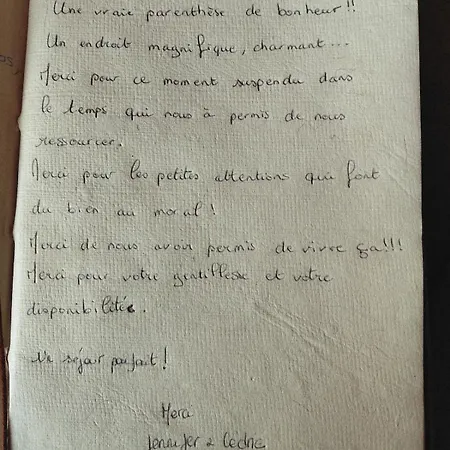 Une vraie parenthèse de bonheur!!
Un endroit magnifique, charmant...
Merci pour ce moment suspendu dans
le temps qui nous à permis de nous
ressourcer.
Merci pour les petites attentions qui font
du bien au moral!
Merci de nous avoir permis de vivre ça!!!
Merci pour votre gentillesse et votre
disponibilité.
Un séjour parfait!
Merci
Jennifer & Cédric